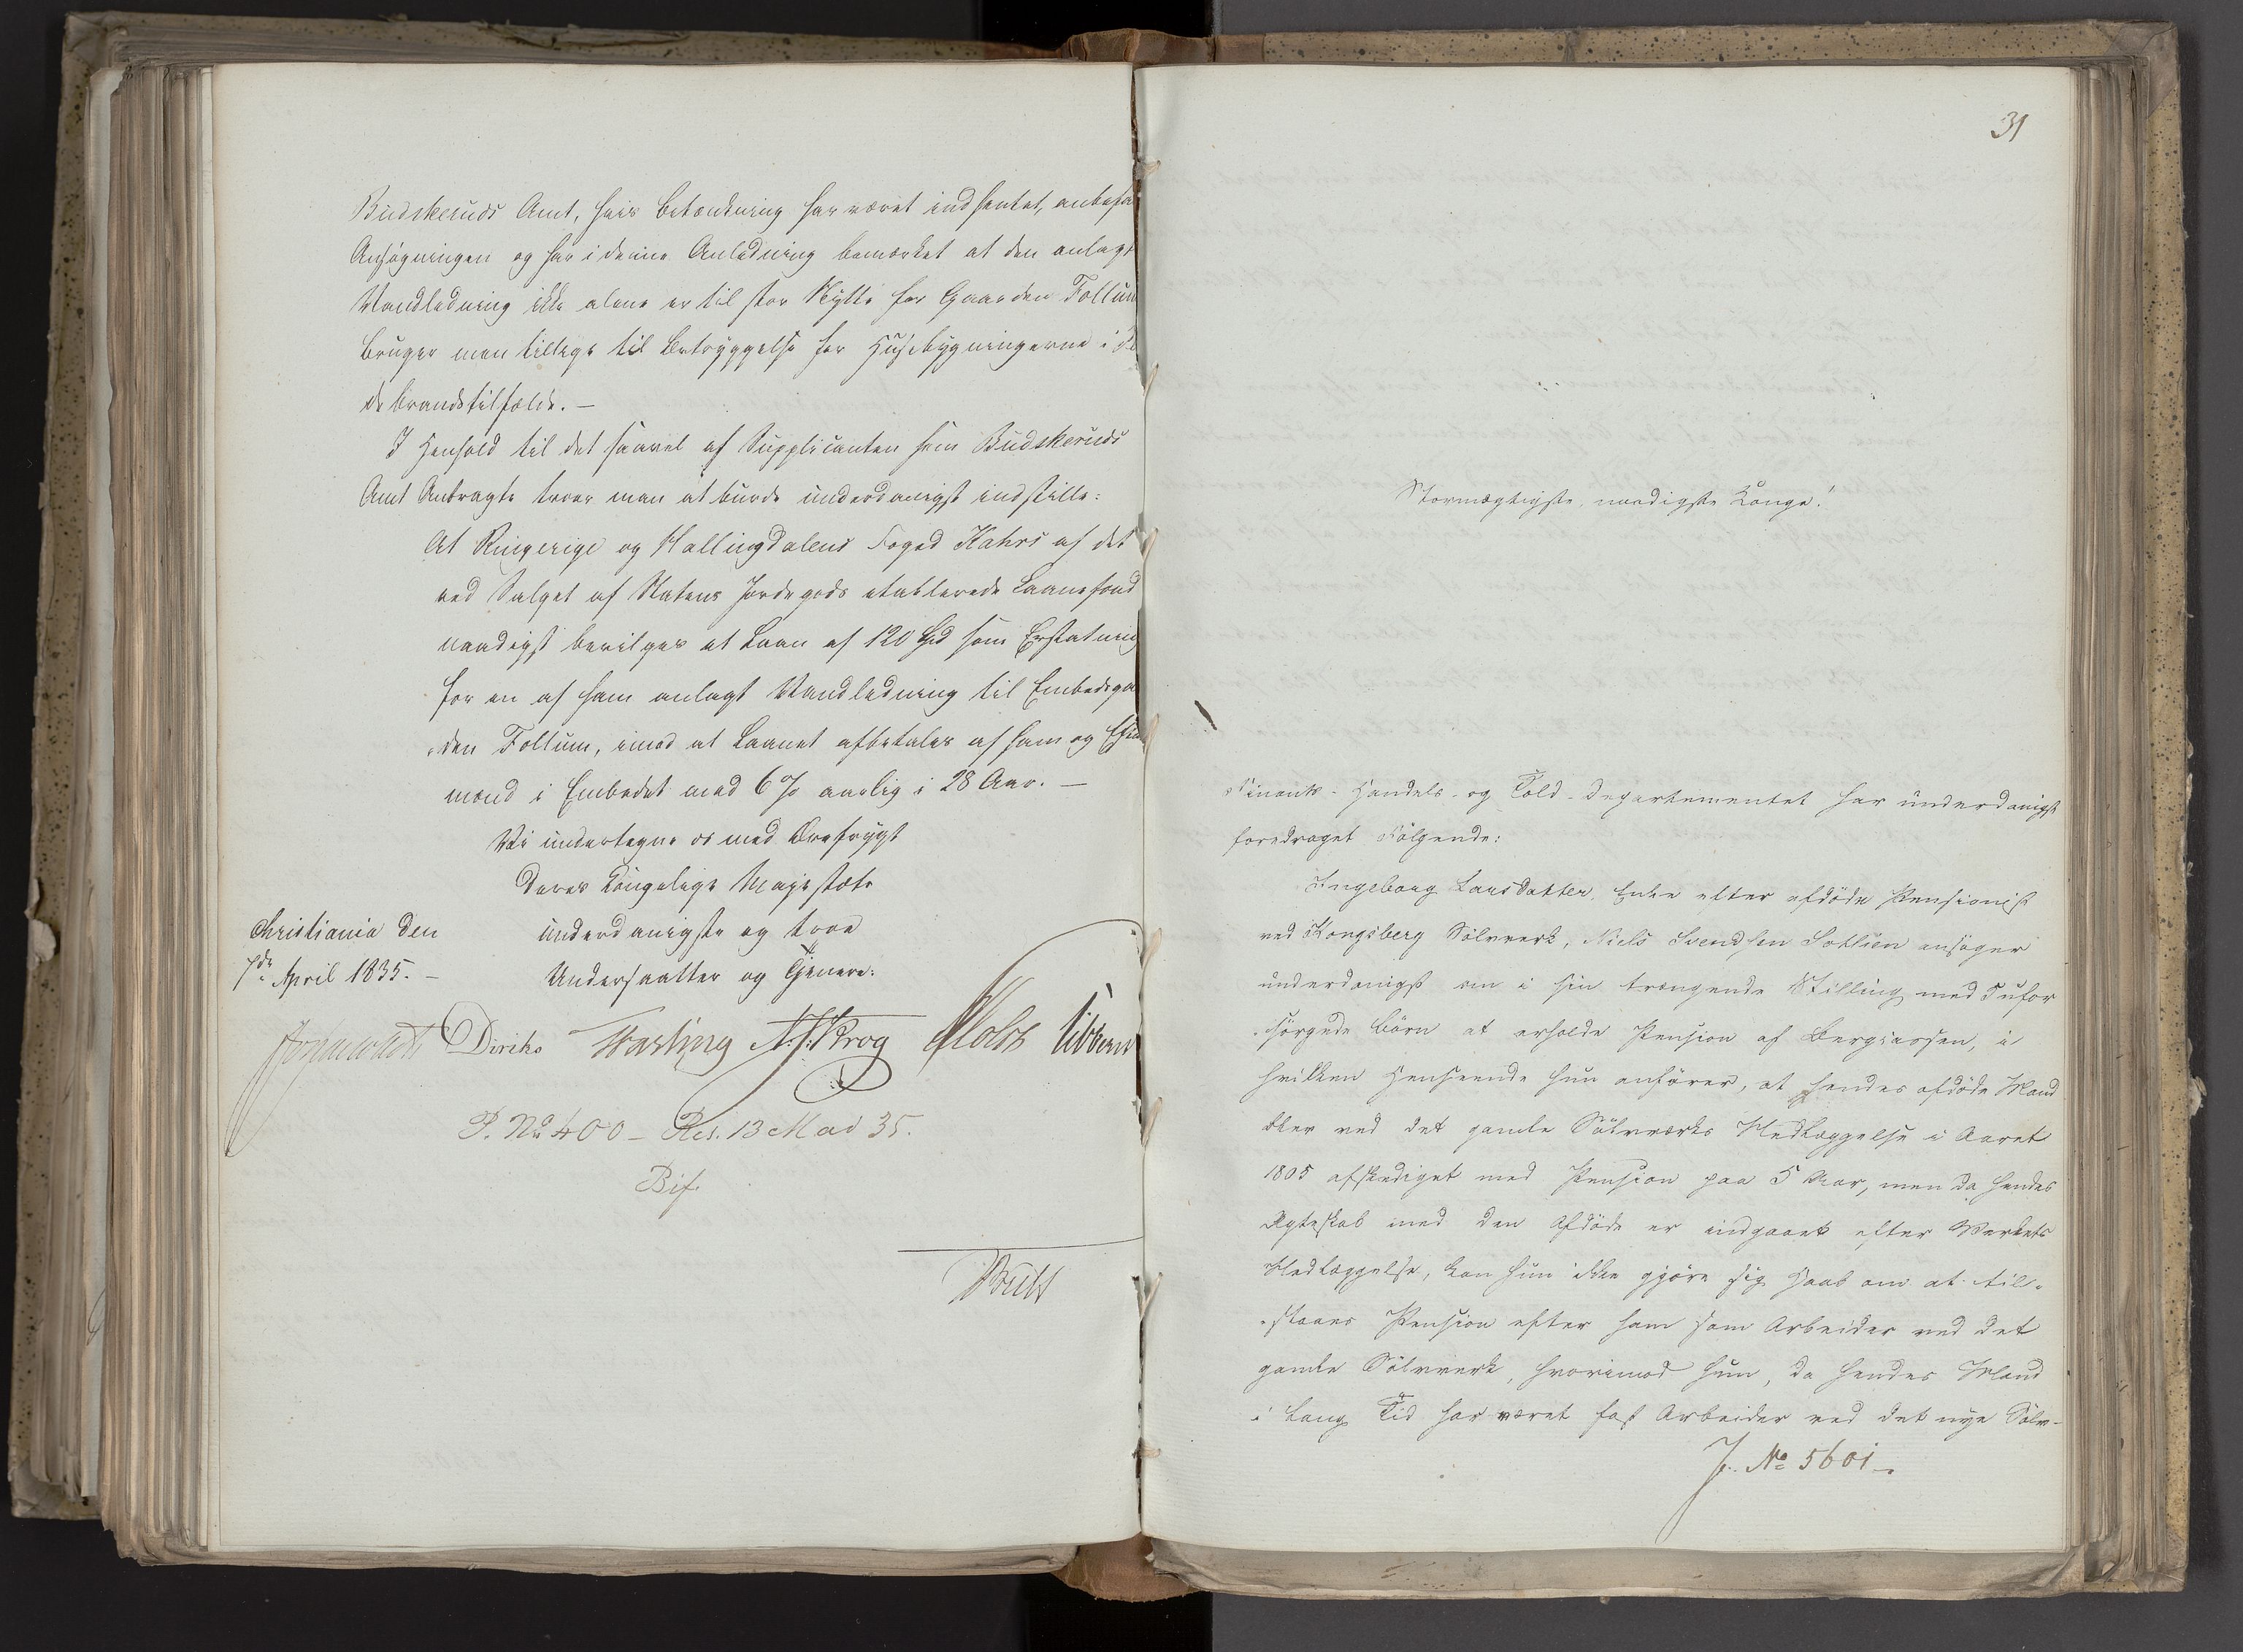 Budskeruds Amt, hvis Betænkning har været indhentet, anbefa
Ansøgningen og har i denne Anledning bemærket at den anlagt
Vandledning ikke alene er til stor Nytte for Gaarden Follum
Bruger men tillige til Betryggelse for Husebygningerne i
de Brandstilfælde. –
I Henhold til det saavel af Supplicanten som Budskeruds
Amt Andragte troer man at burde underdanigst indstille:
At Ringerige og Hallingdalens Foged Kahrs af det
ved Salget af Statens Jordegods etablerede Laanefond
naadigst bevilges et Laan af 120 Spd som Erstatning
for en af ham anlagt Vandledning til Embedsga
den Follum, imod at Laanet afbetales af ham og Efter
mænd i Embedet med 6 % aarlig i 28 Aar. –
Vi undertegne os med Ærefrygt
Deres Kongelige Majestæts
Christiania den underdanigste og troe
7de April 1835. – Undersaatter og Tjenere:
Diriks Fasting Krog Holst Vibbern
P. No 400 – Res. 13 Mai 35.
Bif.
Bull
31
Stormægtigste, naadigste Konge!
Finants- Handels- og Told-Departementet har underdanigst
foredraget Følgende:
Ingeborg Larsdatter, Enke efter afdøde Pensionist
ved Kongsberg Sølvverk, Niels Svendsen Sotlien ansøger
underdanigst om i sin trængende Stilling med 3 ufor
sørgede Børn at erholde Pension af Bergkassen, i
hvilken Henseende hun anfører, at hendes afdøde Mand
blev ved det gamle Sølvværks Nedlæggelse i Aaret
1805 afskediget med Pension paa 5 Aar, men da hendes
Ægteskab med den Afdøde er indgaaet efter Værkets
Nedlæggelse, kan hun ikke gjøre sig Haab om at til-
staaes Pension efter ham som Arbeider ved det
gamle Sølvverk, hvorimod hun, da hendes Mand
i lang Tid har været fast Arbeider ved det nye Sølv-
J. No 5601 –